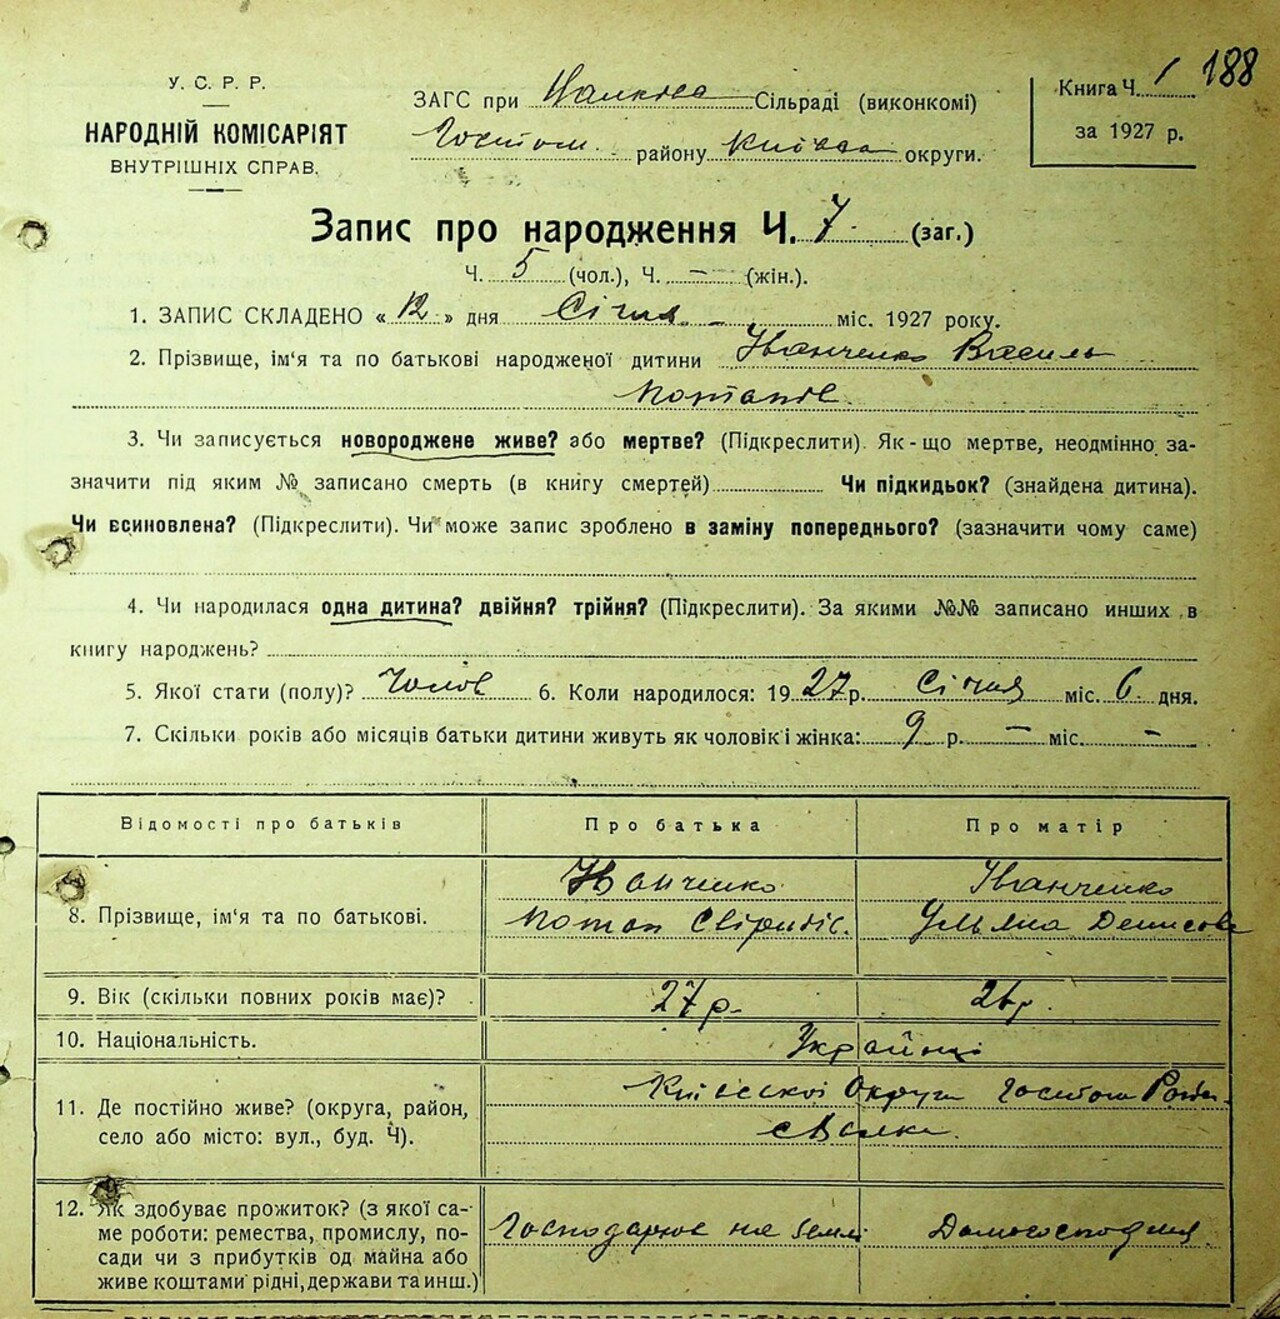 188
У. С. Р. Р.
НАРОДНІЙ КОМІСАРІЯТ
ВНУТРІШНІХ СПРАВ.
ЗАГС при Сільраді (виконкомі)
Гостом. району Київськ округи.
Книга Ч. 1
за 1927 р.
Запис про народження Ч. 7 (заг.)
Ч. 5 (чол.), Ч. — (жін.).
1. ЗАПИС СКЛАДЕНО « 12 » дня Січня — міс. 1927 року.
2. Прізвище, ім‘я та по батькові народженої дитини Іванченко Василь
Потапів.
3. Чи записується новороджене живе? або мертве? (Підкреслити). Як-що мертве, неодмінно за-
значити під яким № записано смерть (в книгу смертей) Чи підкидьок? (знайдена дитина).
Чи всиновлена? (Підкреслити). Чи може запис зроблено в заміну попереднього? (зазначити чому саме)
4. Чи народилася одна дитина? двійня? трійня? (Підкреслити). За якими №№ записано инших в
книгу народжень?
5. Якої стати (полу)? Чолов 6. Коли народилося: 19 27 р. Січня міс. 6 дня.
7. Скільки років або місяців батьки дитини живуть як чоловік і жінка: 9 р. — міс. —
Відомості про батьків Про батька Про матір
8. Прізвище, ім‘я та по батькові. Іванченко Іванченко
Потап Свіридів. Ульяна Денисов
9. Вік (скільки повних років має)? 27 р. 26 р.
10. Національність. Українці
11. Де постійно живе? (округа, район, Київської Округи Гостом Район.
село або місто: вул., буд. Ч).
12. Як здобуває прожиток? (з якої са-
ме роботи: ремества, промислу, по- Господарює на землі Домогосподиня
сади чи з прибутків од майна або
живе коштами рідні, держави та инш.)